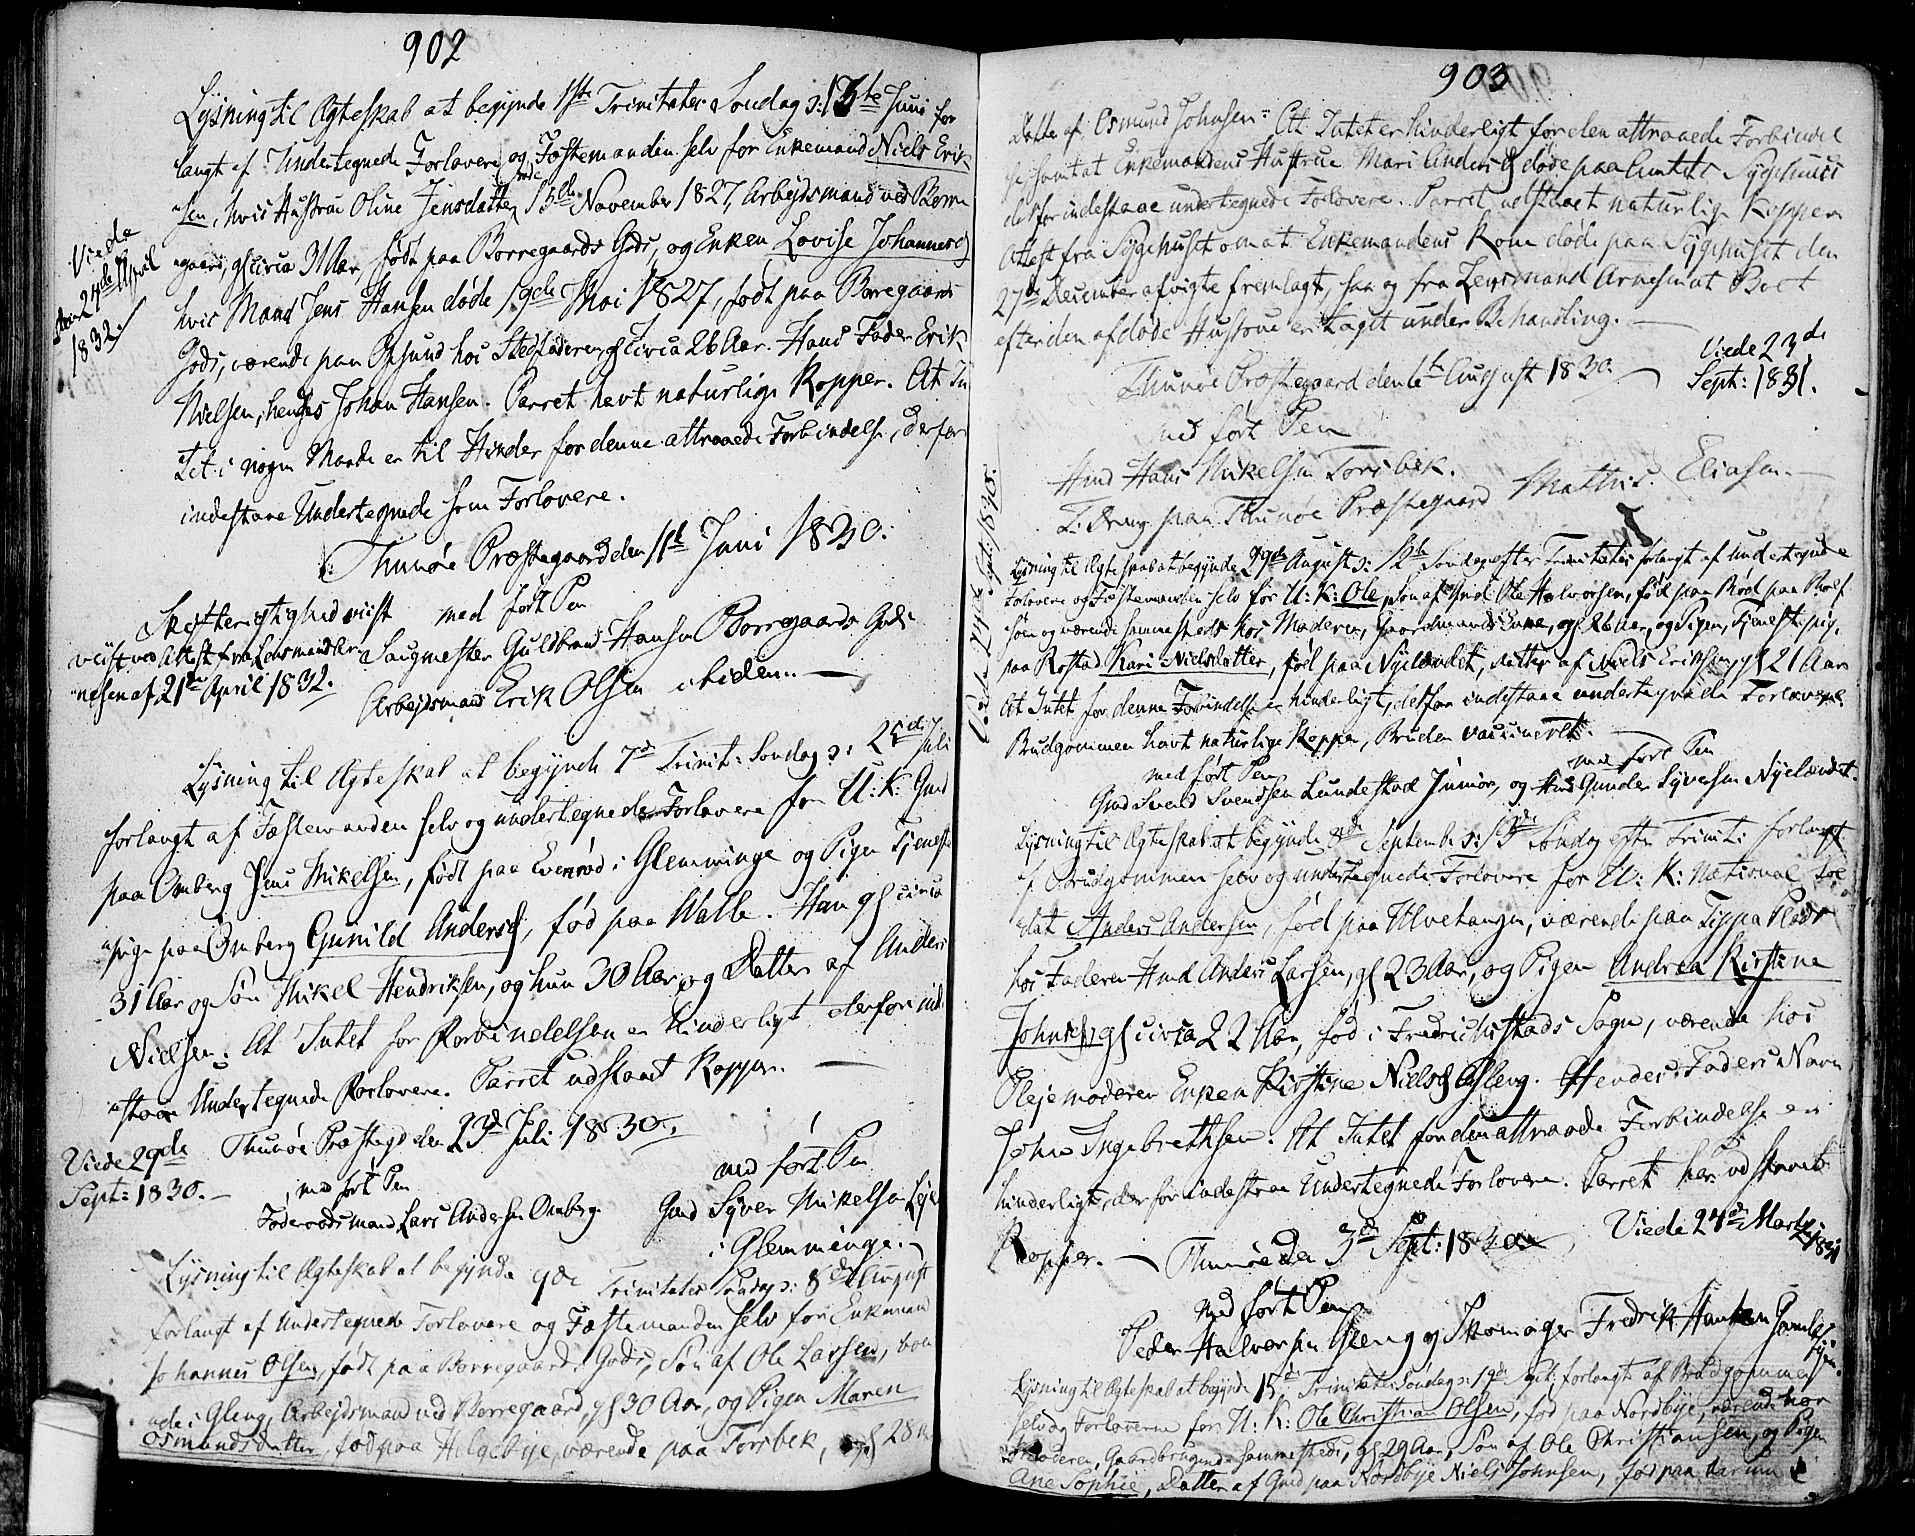 902
Lysning til Ægteskab at begynde 1ste Trinitates Søndag ɔ: 13te Juni for
langt af Undertegnede Forlovere og Fæstemanden selv for Enkemand Niels Erik
sen, hvis Hustrue Oline Jensdatter døde 15de November 1827, Arbejdsmand ved Borre
gaard, gl circa 31 Aar, født paa Borregaards Gods, og Enken Lovise Johannesd
hvis Mand Jens Hansen døde 19de Mai 1827, født paa Borregaards
Gods, værende paa Opsund hos Stedfaderen, gl circa 26 Aar. Hans Fader Erik
Nielsen, hendes Johan Hansen. Parret havt naturlige Kopper. At In
tet i nogen Maade er til Hinder for denne attraaede Forbindelse, derfor
indestaae Undertegnede som Forlovere.
Viede
den 24de April
1832
Thunøe Præstegaard den 11te Juni 1830.
Skifterigtighed viist
viist ved Attest fra Lensmand Ar
nesen af 21de April 1832.
med ført Pen
Saugmester Guldbrand Hansen Borregaards Gods
Arbejdsmand Erik Olsen ibidem.
Lysning til Ægteskab at begynde 7de Trinit: Søndag ɔ: 25de Juli
forlangt af Fæstemanden selv og undertegnede Forlovere for U: K: Gmd
paa Omberg Jens Mikelsen, født paa Evenrød i Glemminge og Pigen Tjeneste
pige paa Omberg Gunild Andersd, fød paa Walle. Han gl circa
31 Aar og Søn Mikel Hendriksen, og hun 30 Aar, og Datter af Anders
Nielsen. At Intet for Forbindelsen er hinderligt derfor ind
estaae Undertegnede Forlovere. Parret udstaaet Kopper.
Viede 29de
Sept: 1830.
Thunøe Præstegd den 23de Juli 1830.
med ført Pen
Foderaadsmand Lars Andersen Omberg
med ført Pen
Gmd Syver Mikelsen Leje
i Glemminge.
Lysning til Ægteskab at begynde 9de Trinitates Søndag ɔ: 8de August
forlangt af Undertegnede Forlovere og Fæstemanden selv for Enkemand
Johannes Olsen, født paa Borregaards Gods, Søn af Ole Larsen, boe
nde i Gleng, Arbejdsmand ved Borregaard, gl 30 Aar, og Pigen Maren
Osmundsdatter, fød paa Helgebye, værende paa Torsbek, gl 28 A
903
Datter af Osmund Johnsen. At Intet er hinderligt for den attraaede Forbindel
se, samt at Enkemandens Hustrue Mari Andersd døde paa Amtets Sygehuus
derfor indestaae undertegnede Forlovere. Parret udstaaet naturlige Kopper
Attest fra Sygehuset om at Enkemandens Kone døde paa Sygehuset den
27de December afvigte fremlagt, saa og fra Lensmand Arnesen at Boet
efter den afdøde Hustrue er taget under Behandling.
Thunøe Præstegaard den 6te August 1830.
Viede 23de
Sept: 1831.
med ført Pen
Hmd Hans Mikelsen Torsbek. Mathis Eliasen
T. Dreng paa Thunøe Præstegaard
Lysning til Ægteskab at begynde 29de August ɔ: 12te Søndag efter Trinitates forlangt af undertegnede
Forlovere og Fæstemanden selv for U: K: Ole, Søn af Gmd Ole Halvorsen, fød paa Rød paa Rolf
søen og værende sammesteds hos Moderen, Gaardmands Enke, gl 26 Aar, og Pigen, Tjenestepige
paa Rostad Kari Nielsdatter, fød paa Nyelændet, datter af Niels Eriksen, gl 21 Aar
At Intet for denne Forbindelse er hinderligt, derfor indestaae undertegnede Forlovere
Brudgommen havt naturlige Kopper, Bruden vaccineret.
med ført Pen med ført Pen
Gmd Svend Svendsen Lundestad Junior, og Hmd Gunder Syversen Nyelændet.
Lysning til Ægteskab at begynde September ɔ: 13de Søndag efter Trinit: forlangt
af Brudgommen selv og undertegnede Forlovere for U: K: National Sol
dat Anders Andersen, fød paa Ulvetangen, værende paa Tippa Plads
hos Faderen Hmd Anders Larsen, gl 23 Aar, og Pigen Andrea Kirstine
Johnsd, gl circa 22 Aar, fød i Fredrichstads Sogn, værende hos
Plejemoderen Enken Kirstine Nielsd Gleng. Hendes Faders Navn
John Ingebrethsen. At Intet for den attraaede Forbindelse er
hinderligt, derfor indestaae Undertegnede Forlovere. Parret har udstaaet
Kopper. Thunøe den 3de Sept: 1830
Viede 24de Martz 1831
med ført Pen
Peder Halvorsen Gleng og Skomager Fredrik Hansen
Lysning til Ægteskab at begynde 15de Trinitates Søndag ɔ: 19de Sept: forlangt af Brudgommen
selv og Forloverne for U: K: Ole Christian Olsen, fød paa Nordbye, værende hos
Faderen, Gaardbrugende sammesteds, gl 29 Aar, Søn af Ole Christiansen, og Pigen
Ane Sophie, Datter af Gmd paa Nordbye Niels Johnsen, fød paa Karum